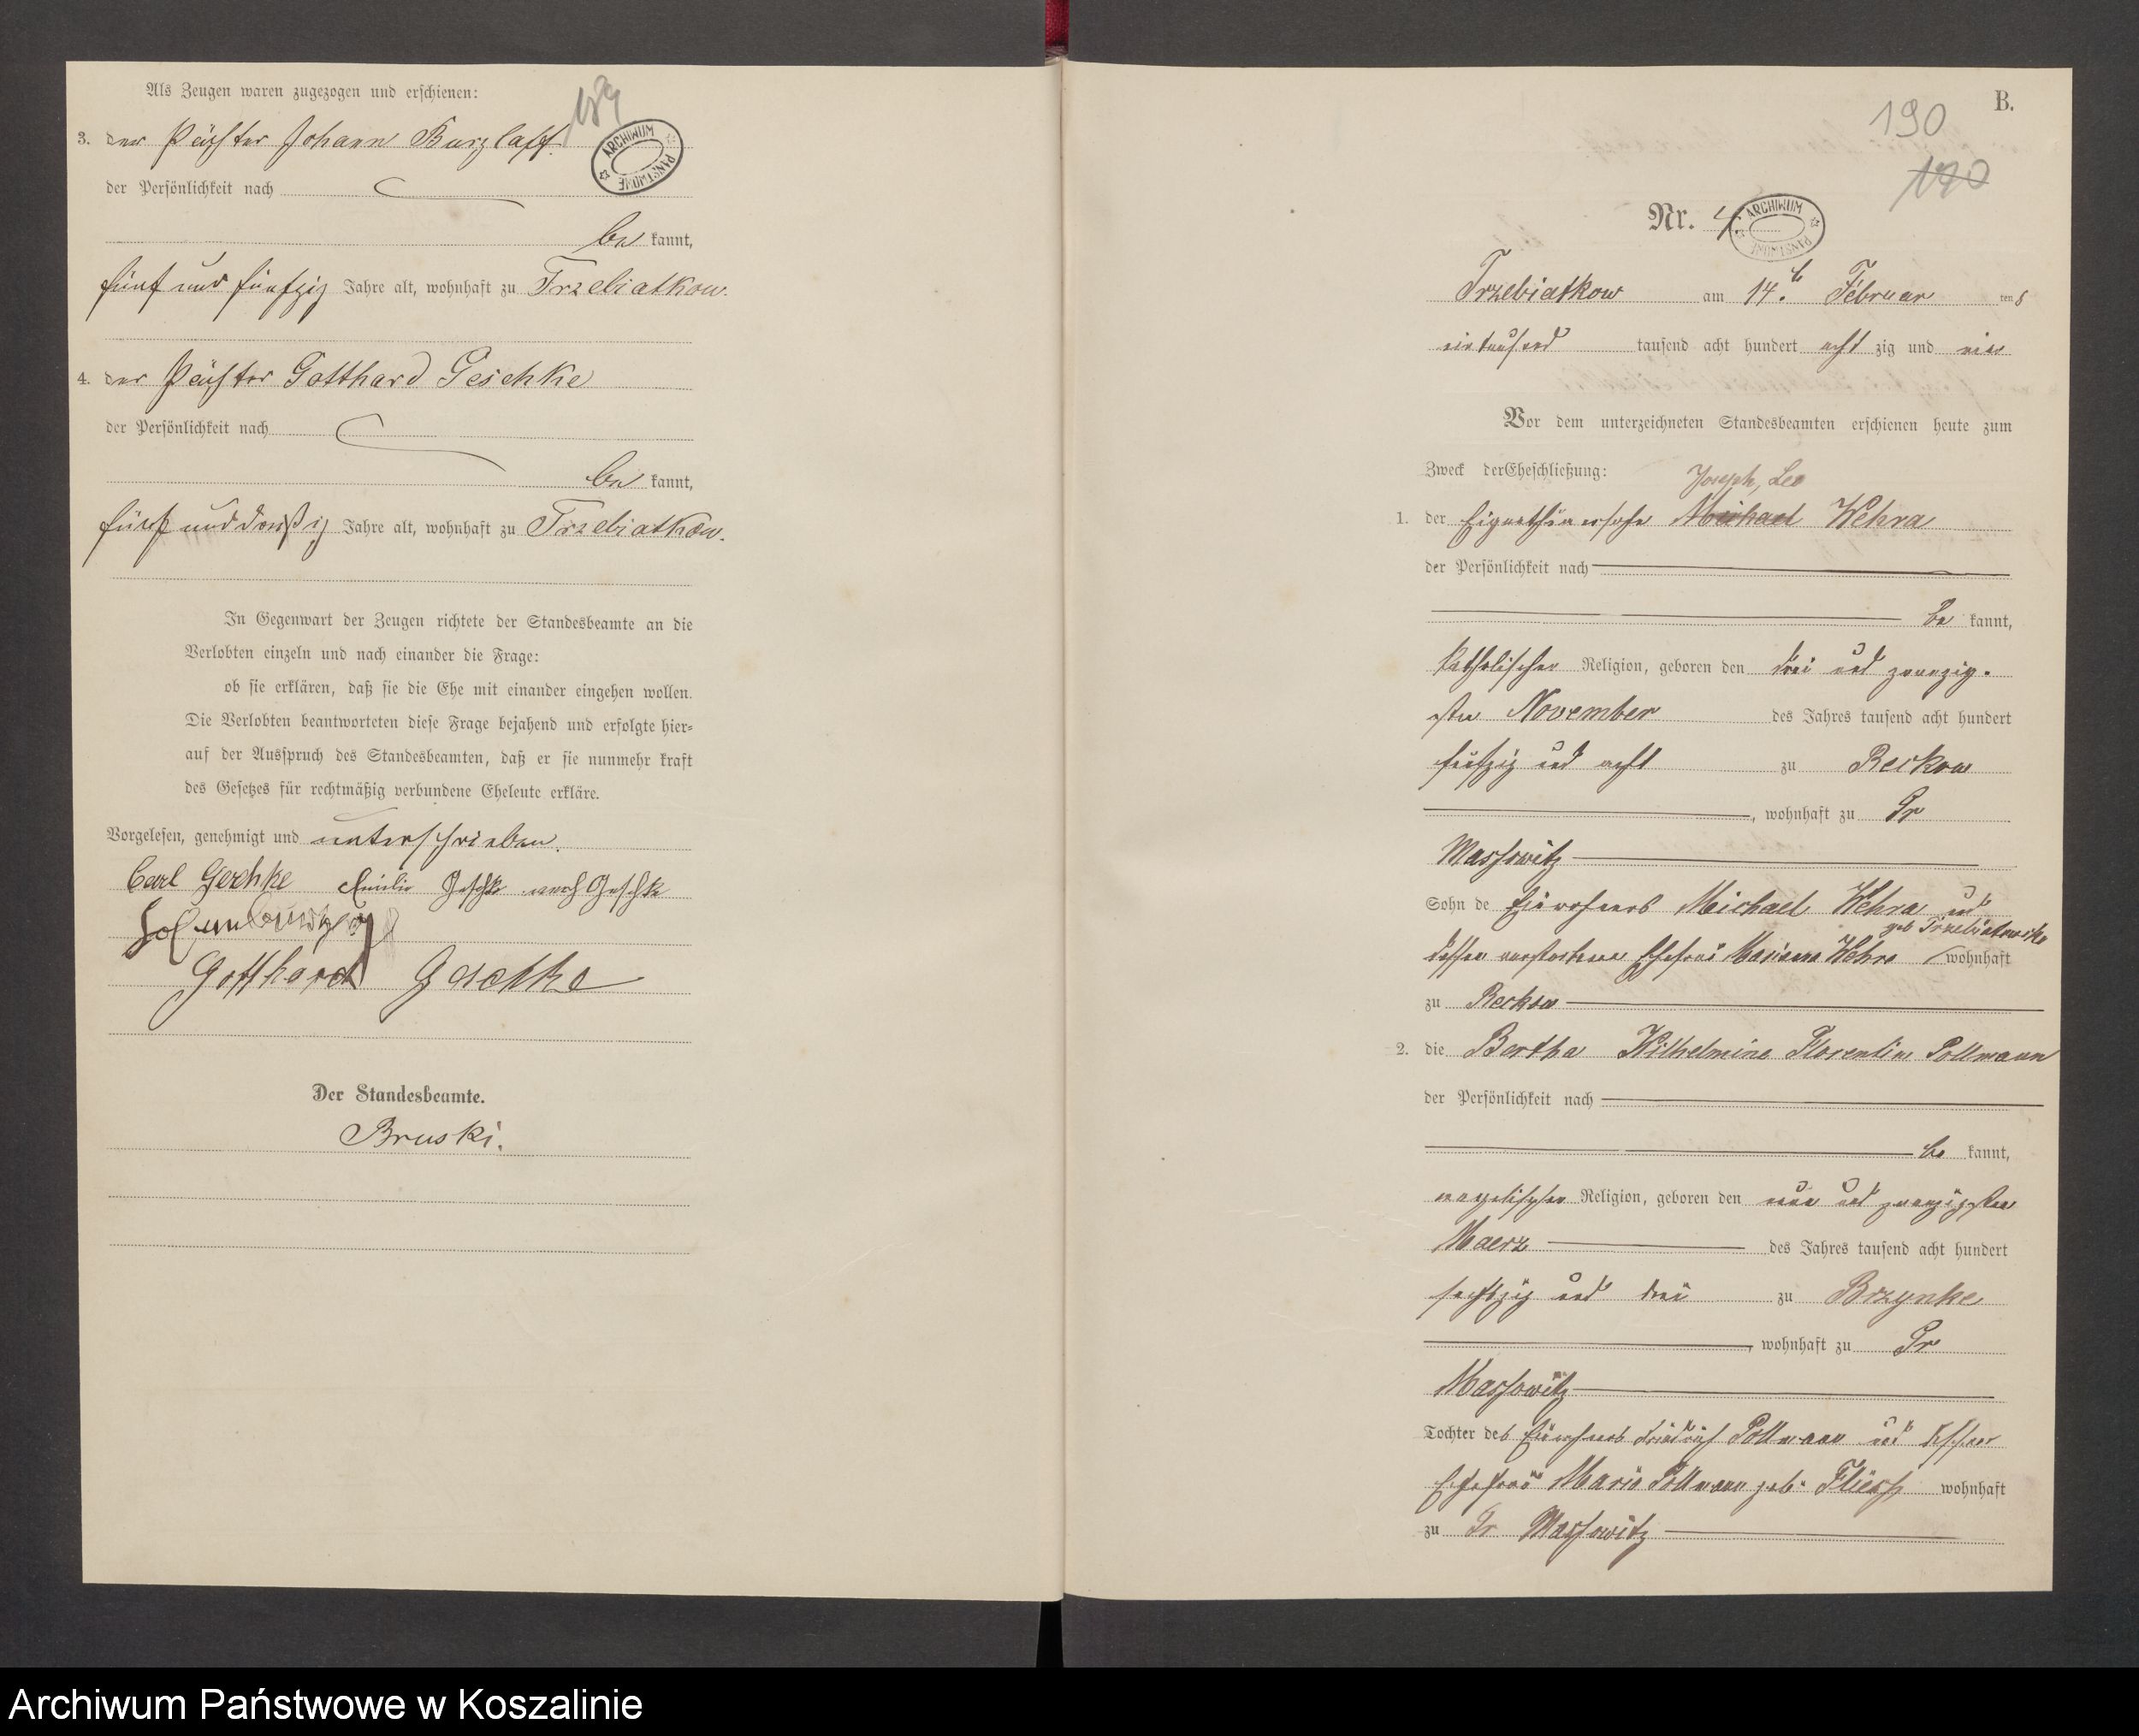 Als Zeugen waren zugezogen und erschienen:
189
ARCHIWUM PAŃSTWOWE
3. der Pächter Johann Burzlaff
der Persönlichkeit nach
be kannt,
fünf und fünfzig Jahre alt, wohnhaft zu Trzebiatkow.
4. der Pächter Gotthard Geschke
der Persönlichkeit nach
be kannt,
fünf und dreißig Jahre alt, wohnhaft zu Trzebiatkow.
In Gegenwart der Zeugen richtete der Standesbeamte an die
Verlobten einzeln und nach einander die Frage:
ob sie erklären, daß sie die Ehe mit einander eingehen wollen.
Die Verlobten beantworteten diese Frage bejahend und erfolgte hier-
auf der Ausspruch des Standesbeamten, daß er sie nunmehr kraft
des Gesetzes für rechtmäßig verbundene Eheleute erkläre.
Vorgelesen, genehmigt und unterschrieben.
Carl Geschke Emilie Geschke Geschke
Gotthard Geschke
Der Standesbeamte.
Bruski.
B.
190
190
Nr. 4
ARCHIWUM PAŃSTWOWE
Trzebiatkow am 14. Februar ten
eintausend tausend acht hundert acht zig und vier
Vor dem unterzeichneten Standesbeamten erschienen heute zum
Zweck der Eheschließung:
Joseph, Leo
1. der Eigenthümersohn Michael Wehra
der Persönlichkeit nach
be kannt,
katholischer Religion, geboren den drei und zwanzig-
sten November des Jahres tausend acht hundert
fünfzig und acht zu Reckow
, wohnhaft zu Gr
Massowitz
Sohn de Einwohners Michael Wehra und
geb Trzebiatowska
dessen verstorbene Ehefrau Mariana Wehra wohnhaft
zu Reckow
2. die Bertha Wilhelmine Florentine Pollmann
der Persönlichkeit nach
be kannt,
evangelischer Religion, geboren den neun und zwanzigsten
Maerz des Jahres tausend acht hundert
sechszig und drei zu Brzynke
, wohnhaft zu Gr
Massowitz
Tochter des Einwohners Friedrich Pollmann und dessen
Ehefrau Marie Pollmann geb. Fliess wohnhaft
zu Gr Massowitz
Archiwum Państwowe w Koszalinie